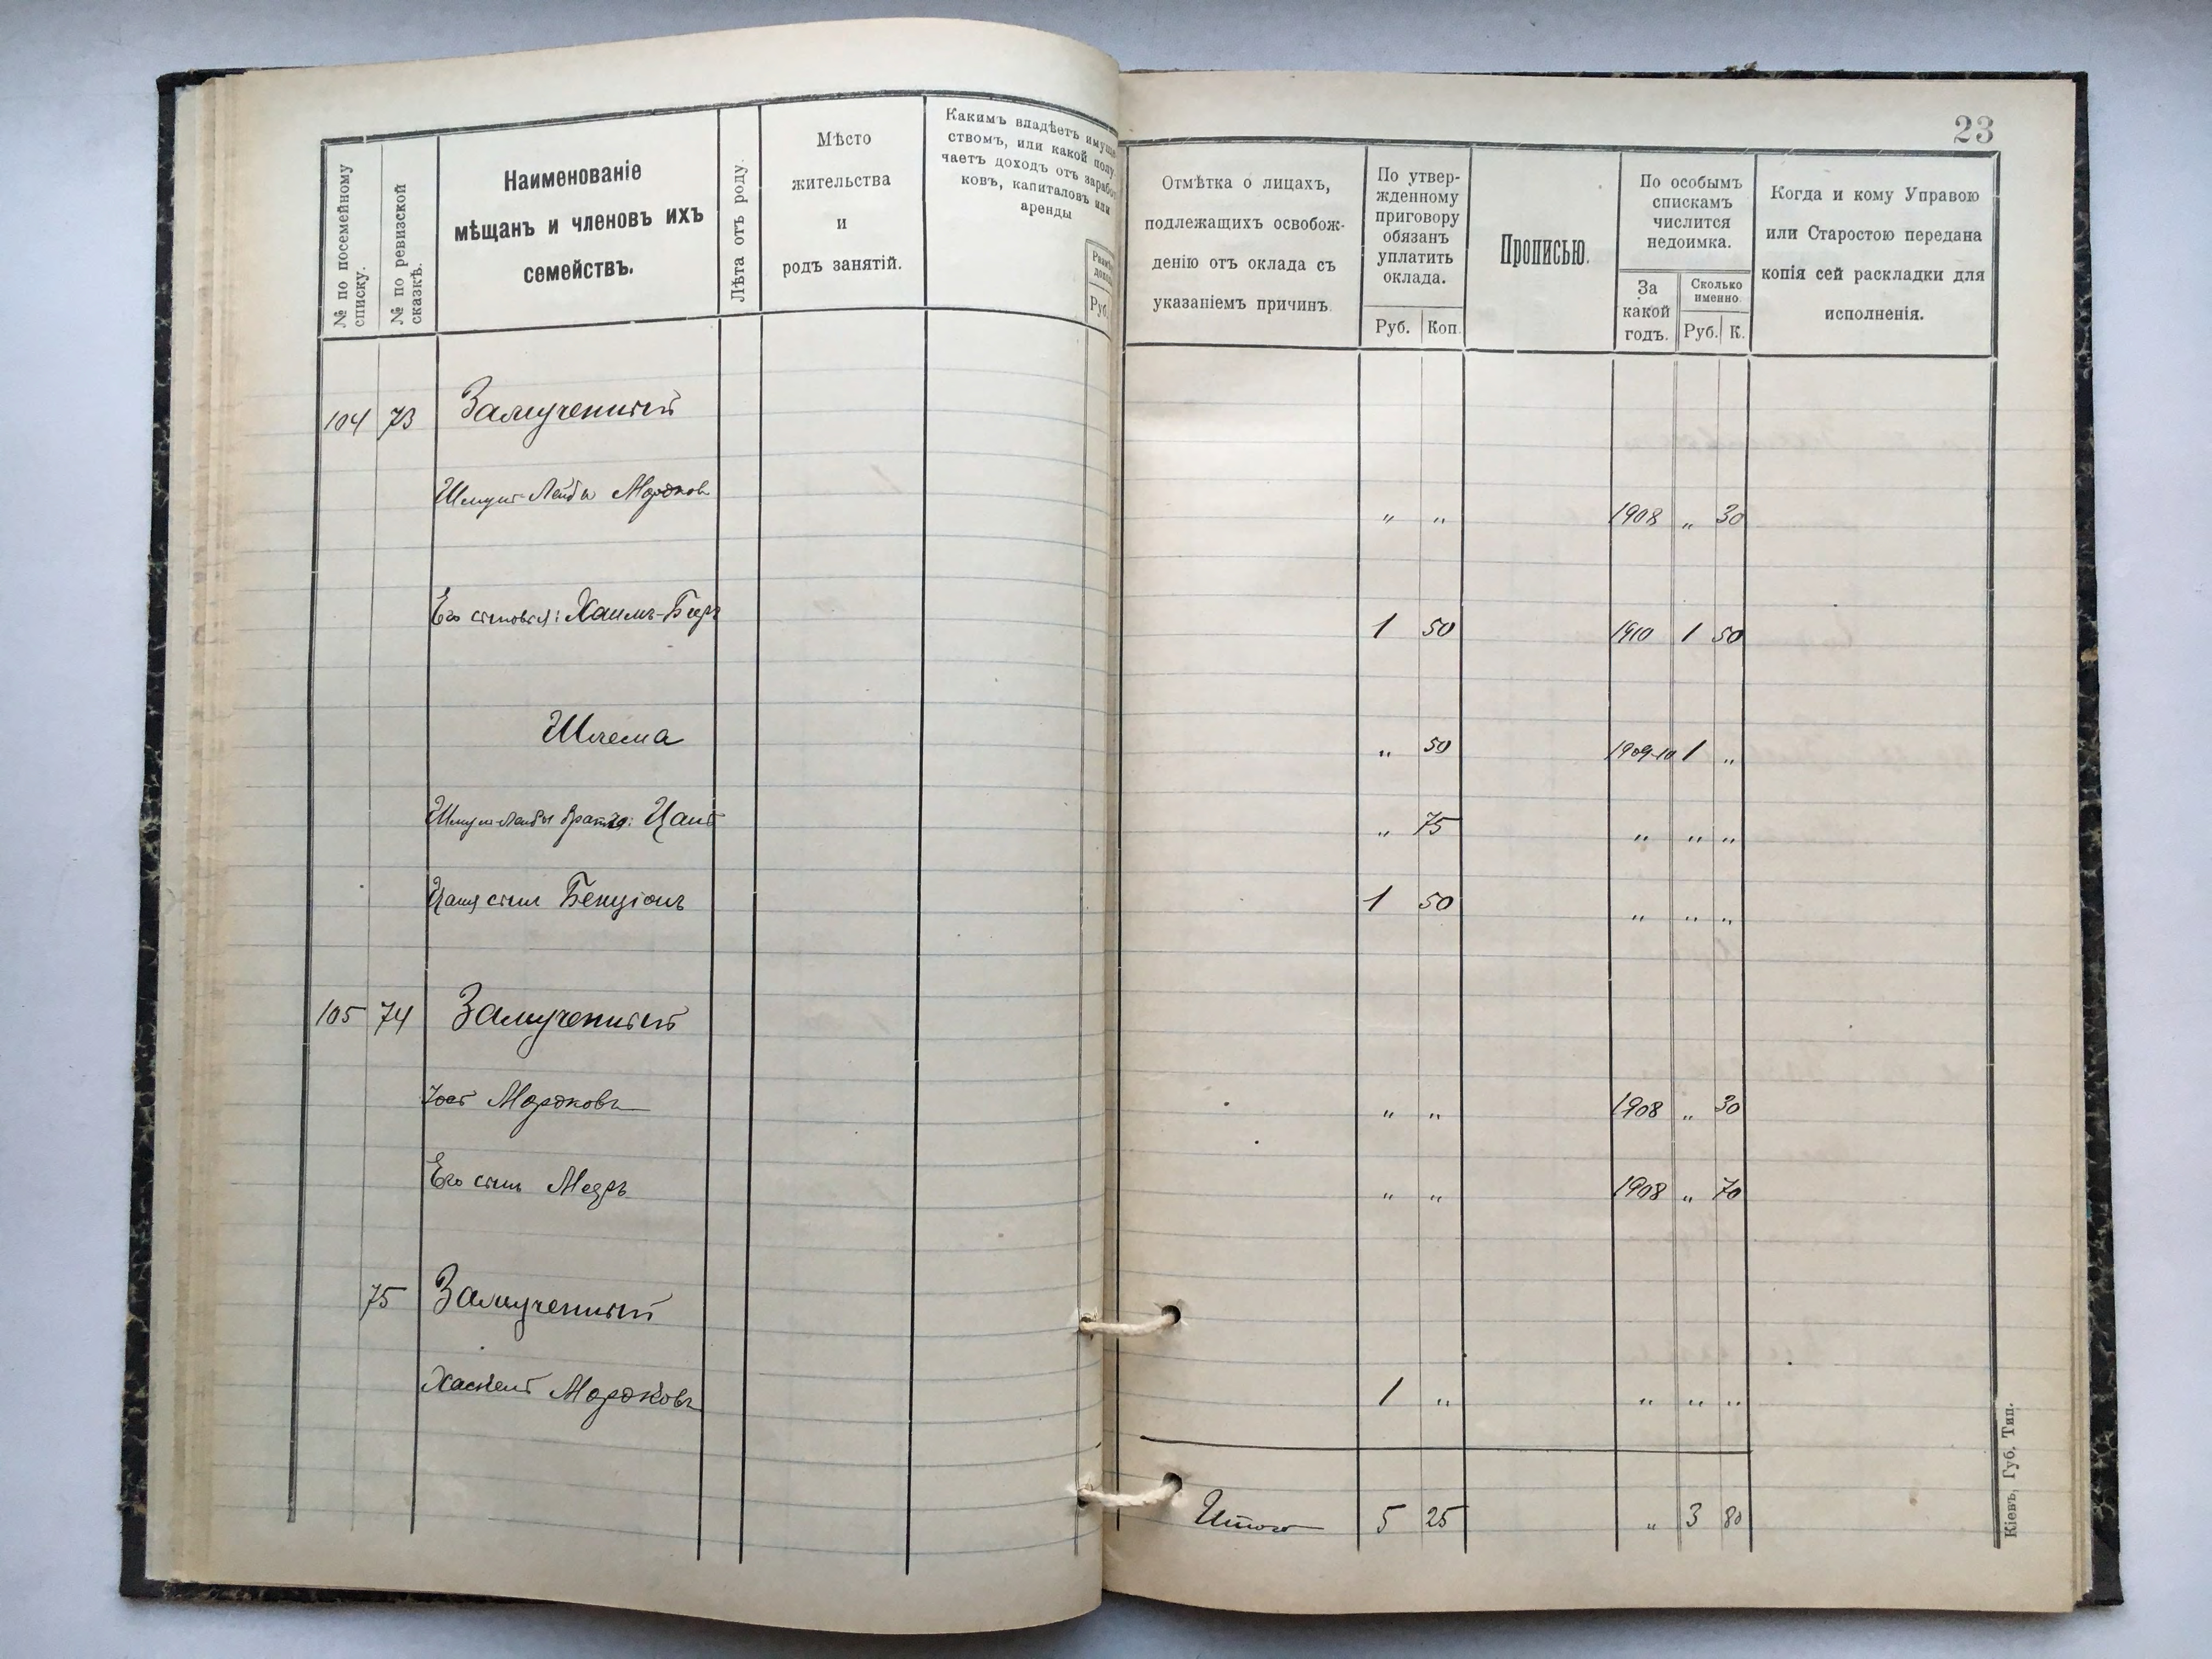 № по посемейному
списку.
№ по ревизской
сказкѣ.
Наименованіе
мѣщанъ и членовъ ихъ
семействъ.
Лѣта отъ роду.
Мѣсто
жительства
и
родъ занятій.
Какимъ владѣетъ имуще
ствомъ, или какой полу
чаетъ доходъ отъ заработ
ковъ, капиталовъ или
аренды
Руб.
104 73 Замученный
Шмуль-Лейба Мордков
Его сыновья: Хаимъ-Беръ
Шлема
Шмуль-Лейбы братья:
сын Бенціонъ
105 74 Замученный
Мордковъ
Его сынъ
75 Замученный
Хаскель Мордковъ
23
Отмѣтка о лицахъ,
подлежащихъ освобож-
денію отъ оклада съ
указаніемъ причинъ.
По утвер-
жденному
приговору
обязанъ
уплатить
оклада.
Руб. Коп.
Прописью.
По особымъ
спискамъ
числится
недоимка.
За
какой
годъ.
Сколько
именно.
Руб. К.
Когда и кому Управою
или Старостою передана
копія сей раскладки для
исполненія.
„ „ 1908 „ 30
1 50 1910 1 50
„ 50 1909-10 1 „
„ 75 „ „ „
1 50 „ „ „
„ „ 1908 „ 30
„ „ 1908 „ 70
1 „ „ „ „
Итого 5 25 „ 3 80
Кіевъ, Губ. Тип.